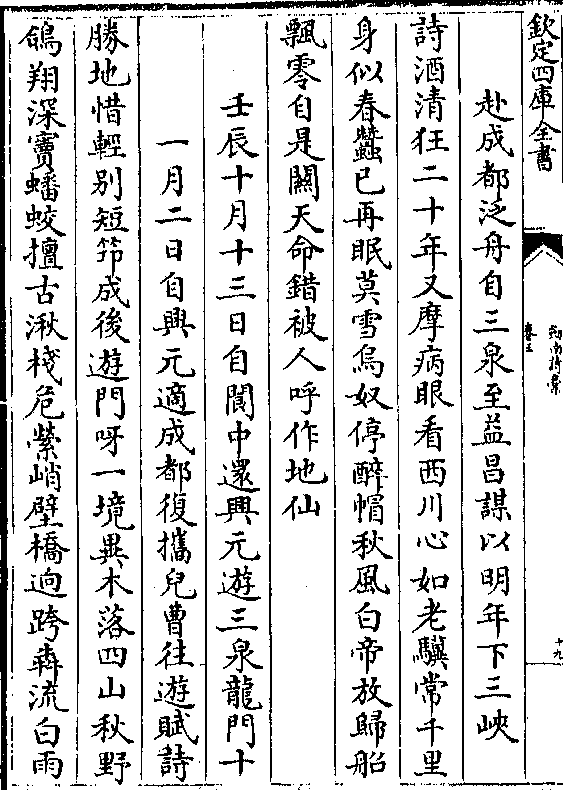 欽定四庫全書
劍南詩藁
卷三
十九
赴成都泛舟自三泉至益昌謀以明年下三峽
詩酒清狂二十年又摩病眼看西川心如老驥常千里
身似春蠶已再眠莫雪烏奴停醉帽秋風白帝放歸船
飄零自是關天命錯被人呼作地仙
壬辰十月十三日自閬中還興元遊三泉龍門十
一月二日自興元適成都復攜兒曹往遊賦詩
勝地惜輕别短笻成後遊門呀一境異木落四山秋野
鴿翔深竇蟠蛟擅古湫棧危縈峭壁橋迥跨犇流白雨